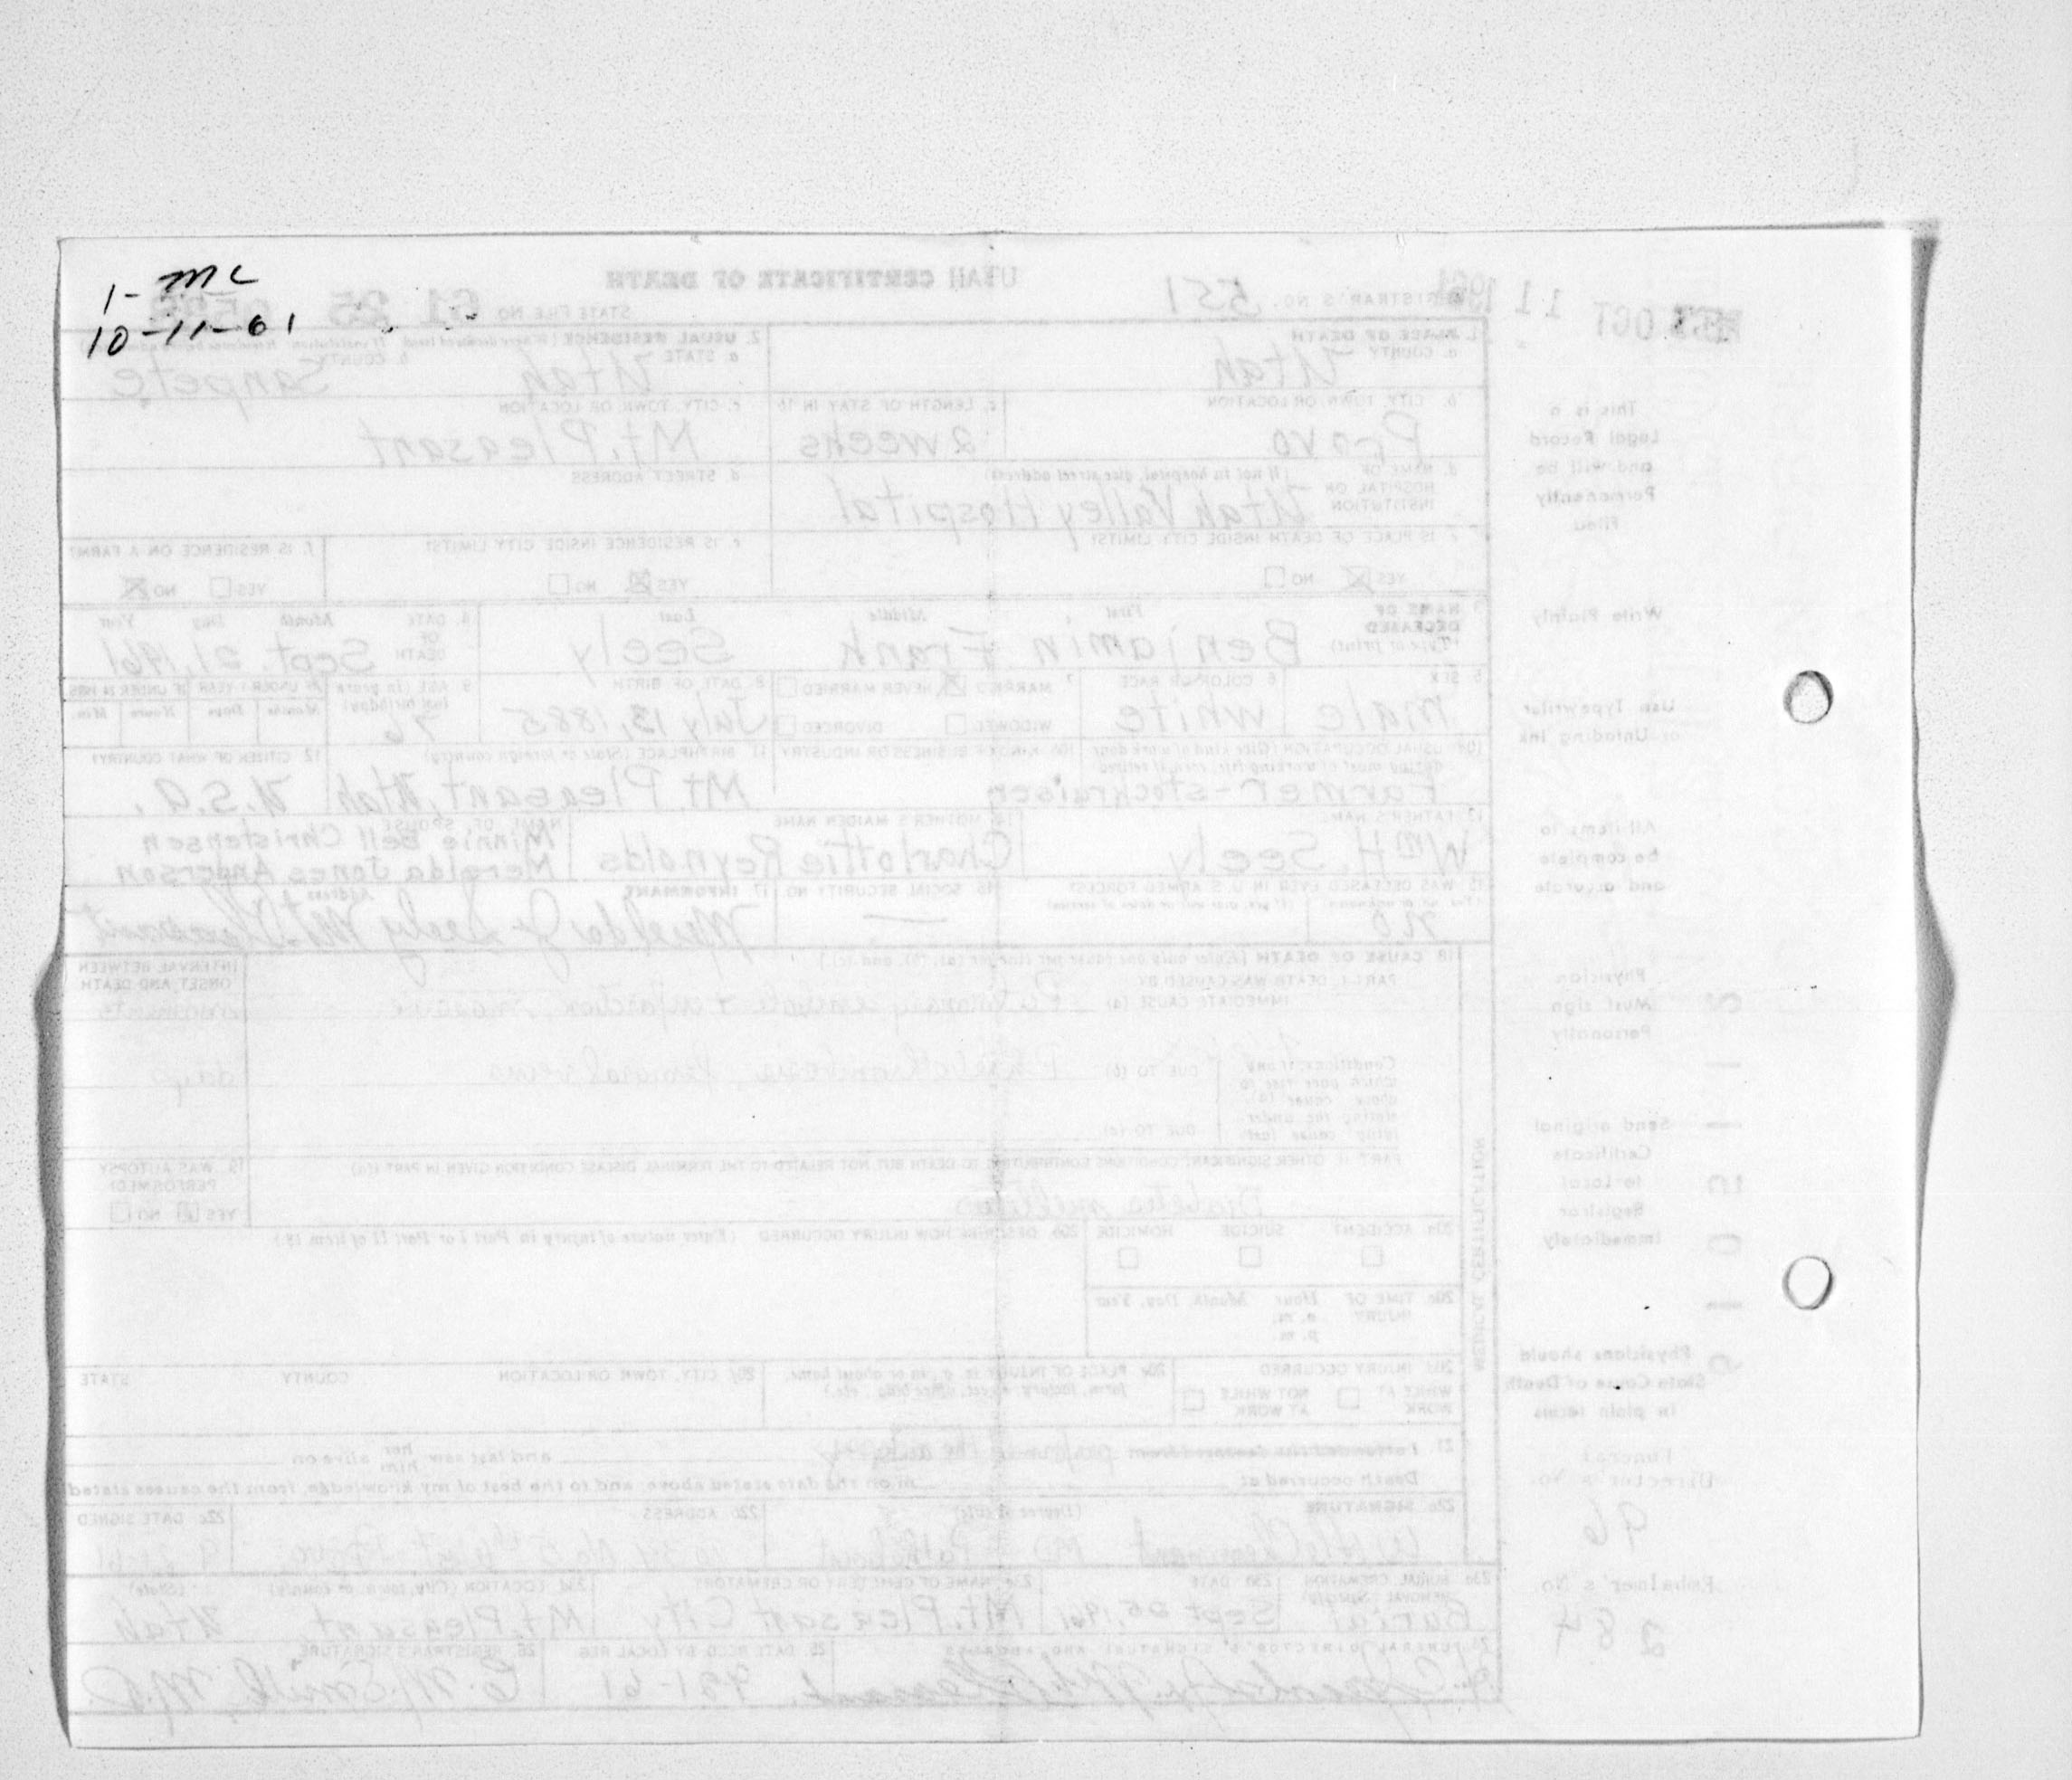 1- mc
10-11-61
UTAH CERTIFICATE OF DEATH
REC'D OCT 11 1961
REGISTRAR'S NO. 551
STATE FILE NO. 61 25
1. PLACE OF DEATH
a. COUNTY Utah
2. USUAL RESIDENCE (Where deceased lived. If institution: Residence before admission)
a. STATE Utah b. COUNTY Sanpete
b. CITY, TOWN, OR LOCATION Provo
c. LENGTH OF STAY IN 1b 2 weeks
c. CITY, TOWN, OR LOCATION Mt. Pleasant
d. NAME OF HOSPITAL OR INSTITUTION (If not in hospital, give street address) Utah Valley Hospital
d. STREET ADDRESS
e. IS PLACE OF DEATH INSIDE CITY LIMITS? YES NO
e. IS RESIDENCE INSIDE CITY LIMITS? YES NO
f. IS RESIDENCE ON A FARM? YES NO
3. NAME OF DECEASED (Type or print) First Middle Last
Benjamin Frank Seely
4. DATE OF DEATH Month Day Year
Sept. 21, 1961
5. SEX Male
6. COLOR OR RACE White
7. MARRIED NEVER MARRIED WIDOWED DIVORCED
8. DATE OF BIRTH July 13, 1885
9. AGE (In years last birthday) 76
IF UNDER 1 YEAR Months Days IF UNDER 24 HRS. Hours Min.
10a. USUAL OCCUPATION (Give kind of work done during most of working life, even if retired)
Farmer-stockraiser
10b. KIND OF BUSINESS OR INDUSTRY
11. BIRTHPLACE (State or foreign country) Mt. Pleasant, Utah
12. CITIZEN OF WHAT COUNTRY? U.S.A.
13. FATHER'S NAME Wm H. Seely
14. MOTHER'S MAIDEN NAME Charlottie Reynolds
NAME OF SPOUSE Minnie Bell Christensen
Merelda Jones Anderson
15. WAS DECEASED EVER IN U.S. ARMED FORCES? no
16. SOCIAL SECURITY NO.
17. INFORMANT Address
Merelda J. Seely Mt. Pleasant
18. CAUSE OF DEATH (Enter only one cause per line for (a), (b), and (c).)
INTERVAL BETWEEN ONSET AND DEATH
PART I. DEATH WAS CAUSED BY:
IMMEDIATE CAUSE (a) Pulmonary embolic infarction, massive
Conditions, if any, which gave rise to above cause (a), stating the underlying cause last.
DUE TO (b) Phlebothrombosis, femoral veins days
DUE TO (c)
PART II. OTHER SIGNIFICANT CONDITIONS CONTRIBUTING TO DEATH BUT NOT RELATED TO THE TERMINAL DISEASE CONDITION GIVEN IN PART I(a)
Diabetes mellitus
19. WAS AUTOPSY PERFORMED? YES NO
20a. ACCIDENT SUICIDE HOMICIDE
20b. DESCRIBE HOW INJURY OCCURRED (Enter nature of injury in Part I or Part II of item 18.)
20c. TIME OF INJURY Hour Month, Day, Year
a. m.
p. m.
20d. INJURY OCCURRED WHILE AT WORK NOT WHILE AT WORK
20e. PLACE OF INJURY (e. g., in or about home, farm, factory, street, office bldg., etc.)
20f. CITY, TOWN, OR LOCATION COUNTY STATE
21. performed the autopsy and last saw her him alive on
Death occurred at m on the date stated above; and to the best of my knowledge, from the causes stated.
22a. SIGNATURE (Degree or title) MD Pathologist
22b. ADDRESS Provo
22c. DATE SIGNED
23a. BURIAL, CREMATION, REMOVAL (Specify) Burial
23b. DATE Sept 25, 1961
23c. NAME OF CEMETERY OR CREMATORY Mt. Pleasant City
23d. LOCATION (City, town, or county) (State) Mt. Pleasant, Utah
24. FUNERAL DIRECTOR'S SIGNATURE AND ADDRESS Mt. Pleasant
25. DATE RECD. BY LOCAL REG. 9-21-61
26. REGISTRAR'S SIGNATURE
MEDICAL CERTIFICATION
This is a Legal Record and will be Permanently Filed
Write Plainly
Use Typewriter or Unfading Ink
All items to be complete and accurate
Physician Must sign Personally
Send original Certificate to Local Registrar Immediately
Physicians should State Cause of Death in plain terms
Funeral Director's No.
96
Embalmer's No.
284